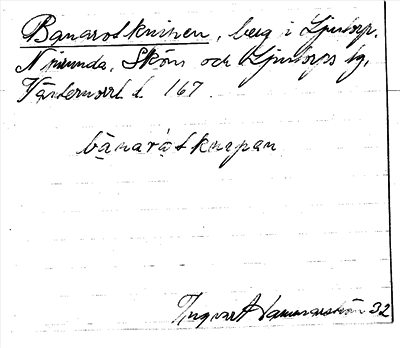 Banarotknippen, berg i Ljustorp.
Njurunda, Sköns och Ljustorps tg.
Västernorrl. l. 167.
bänarátknepan
Ingvar Hammarström 32